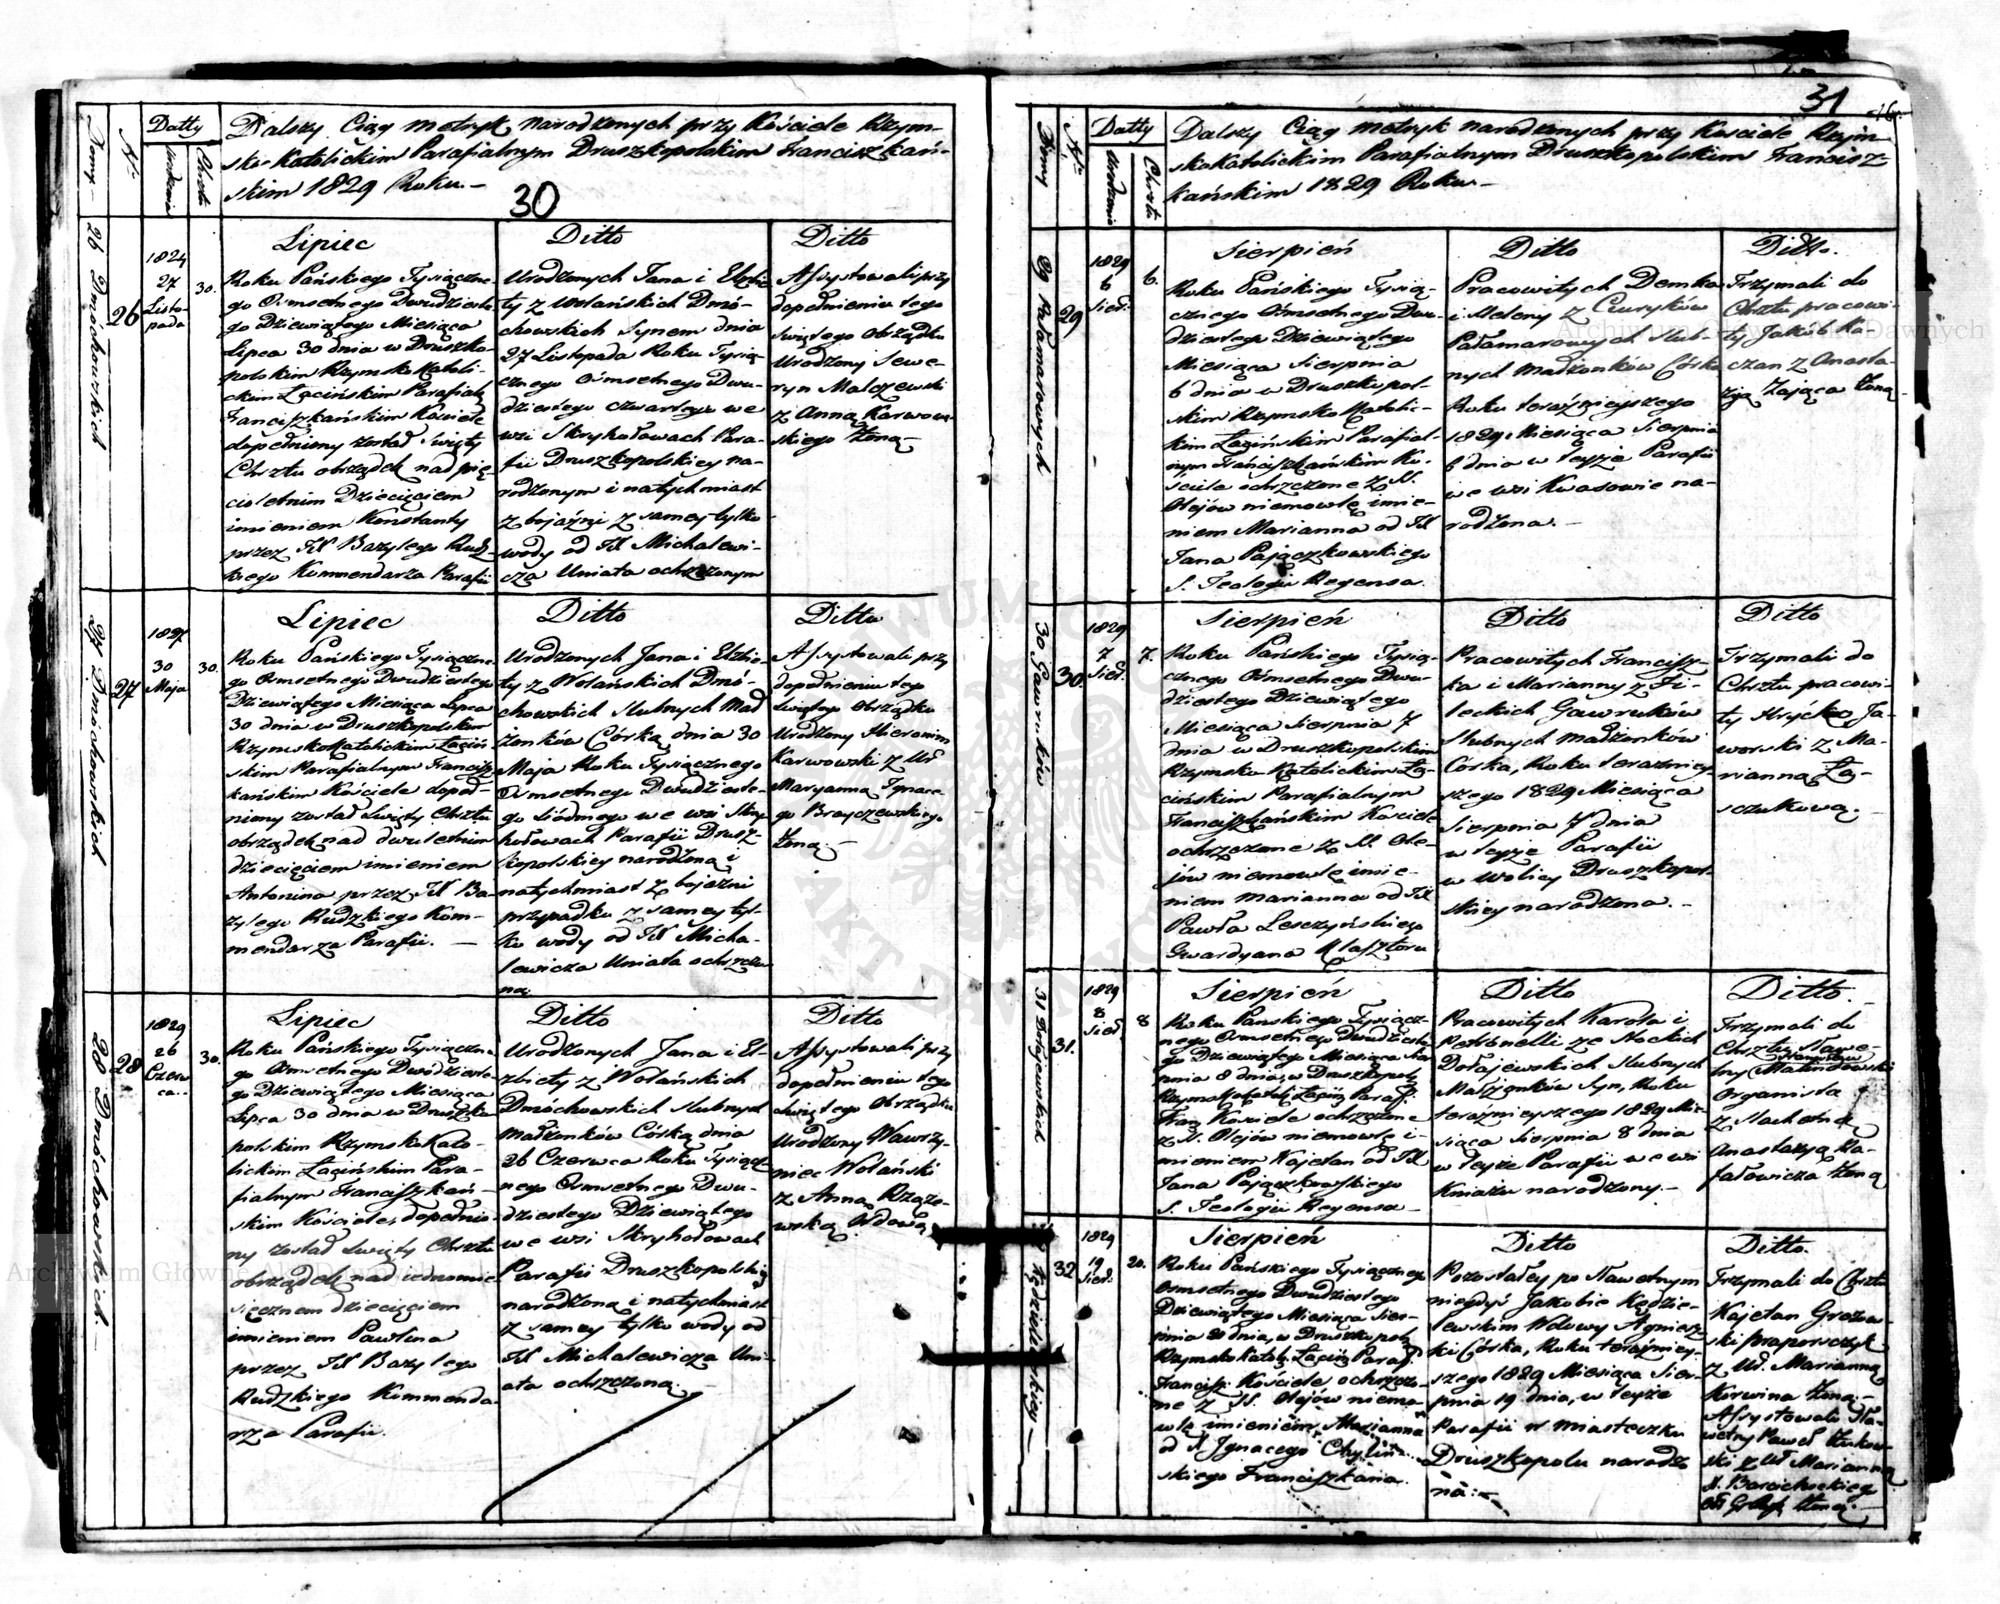 Dalszy Ciąg metryk narodzonych przy Kościele Rzym-
sko-Katolickim Parafialnym Druszkopolskim Franciszkań-
skim 1829 Roku.-
30
Datty
Urodzenia
Chrztu
Nr
Domy
26 Dmóchowskich
26
1824
27
Listo-
pada
30.
Lipiec
Roku Pańskiego Tysiączne-
go Osmsetnego Dwudzieste-
go Dziewiątego Miesiąca
Lipca 30 dnia w Druszko-
polskim Rzymsko Katoli-
ckim Łacińskim Parafial.
Franciszkańskim Kościele
dopełniony został Święty
Chrztu obrządek nad pię-
cioletnim Dziecięciem
imieniem Konstanty
przez JX Bazylego Rudz-
kiego Kommendarza Parafii
Ditto
Urodzonych Jana i Elzbie-
ty z Wolańskich Dmó-
chowskich Synem dnia
27 Listopada Roku Tysią-
cznego Osmsetnego Dwu-
dziestego czwartego we
wsi Skryhołowach Para-
fii Druszkopolskiey na-
rodzonym i natychmiast
z bojaźni z samey tylko
wody od JX Michalewi-
cza Uniata ochrzczonym
Ditto
Assystowali przy
dopełnieniu tego
świętego obrządku
Urodzony Sewe-
ryn Malczewski
z Anną Karwow-
skiego Żoną.-
27 Dmóchowskich
27
1827
30
Maja
30.
Lipiec
Roku Pańskiego Tysiączne-
go Osmsetnego Dwudziestego
Dziewiątego Miesiąca Lipca
30 dnia w Druszkopolskim
RzymskoKatolickim Łaciń-
skim Parafialnym Francisz-
kańskim Kościele dopeł-
niony został Święty Chrztu
obrządek nad dwuletnim
dziecięciem imieniem
Antonina przez JX Ba-
zylego Rudzkiego Kom-
mendarza Parafii. -
Ditto
Urodzonych Jana i Elzbie-
ty z Wolańskich Dmó-
chowskich slubnych Mał
żonków Córką dnia 30
Maja Roku Tysiącznego
Osmsetnego Dwudzieste-
go siódmego we wsi Skry-
hołowach Parafii Drusz-
kopolskiey narodzoną i
natychmiast z bojaźni
przypadku z samey tyl-
ko wody od JX Micha-
lewicza Uniata ochrzczo-
ną
Ditto
Assystowali przy
dopełnieniu tego
świętego obrządku
Urodzony Hieronim
Karwowski z Ur.
Maryanną Ignace-
go Brayczewskiego
Żoną.-
28 Dmóchowskich.-
28
1829
26
Czerw
ca..
30.
Lipiec
Roku Pańskiego Tysiączne-
go Osmsetnego Dwódzieste-
go Dziewiątego Miesiąca
Lipca 30 dnia w Druszko-
polskim RzymskoKato-
lickim Łacińskim Para-
fialnym Franciszkań-
skim Kościele dopełnio-
ny został Święty Chrztu
obrządek nad iednomie-
sięcznem dziecięciem
imieniem Pawlina
przez JX Bazylego
Rudzkiego Kommenda-
rza Parafii.
Ditto
Urodzonych Jana i El-
zbiety z Wolańskich
Dmóchowskich slubnych
małżonków Córką dnia
26 Czerwca Roku Tysiącz-
nego Osmsetnego Dwu-
dziestego Dziewiątego
we wsi Skryhołowach
Parafii Druszkopolskiey
narodzoną i natychmiast
z samey tylko wody od
JX Michalewicza Uni-
ata ochrzczoną.-
Ditto
Assystowali przy
dopełnieniu tego
świętego Obrządku
Urodzony Wawrzy-
niec Wolański
z Anną Rzążo-
wską Wdową
31
Dalszy Ciąg metryk narodzonych przy Kościele Rzym-
skoKatolickim Parafialnym Druszkopolskim Francisz-
kańskim 1829 Roku.-
Datty
Urodzenia
Chrztu
Nr
Domy
29 Pałamarowych
29
1829
6
Sier.
6.
Sierpień
Roku Pańskiego Tysią-
cznego Ośmsetnego Dwu-
dziestego Dziewiątego
Miesiąca Sierpnia
6 dnia w Druszkopol-
skim Rzymsko Katolic-
kim Łacińskim Parafial-
nym Franciszkańskim Ko-
sciele ochrzczone z SS.
Olejów niemowlę imie-
niem Marianna od JX
Jana Pajączkowskiego
S. Teologii Regensa.
Ditto
Pracowitych Demka
i Meleny z Curyków
Pałamarowych slub-
nych małżonków Córka
Roku teraźnieyszego
1829 Miesiąca Sierpnia
6 dnia w teyże Parafii
we wsi Kwasowie na-
rodzona.-
Ditto.
Trzymali do
Chrztu pracowi-
ty Jakób Ka-
czan z Anasta-
zyą Zająca Żoną.
30 Gawruków
30.
1829
7
Sier.
7.
Sierpień
Roku Pańskiego Tysią-
cznego Ośmsetnego Dwu-
dziestego Dziewiątego
Miesiąca Sierpnia 7
dnia w Druszkopolskim
Rzymsko Katolickim Ła-
cińskim Parafialnym
Franciszkańskim Kościele
ochrzczone z SS. Ole-
jów niemowlę imie-
niem Marianna od JX
Pawła Leszczyńskiego
Gwardyana Klasztoru
Ditto
Pracowitych Francisz-
ka i Marianny z Fi-
leckich Gawruków
slubnych małżonków
Córka, Roku teraźniey-
szego 1829 Miesiąca
Sierpnia 7 dnia
w teyże Parafii
w Wolicy Druszkopol-
skiey narodzona.-
Ditto
Trzymali do
Chrztu pracowi-
ty Hryćko Ja-
worski z Ma-
rianną Ła-
szukową.-
31 Dołajewskich
31.
1829
8
Sier.
8
Sierpień
Roku Pańskiego Tysiącz-
nego Osmsetnego Dwudzieste-
go Dziewiątego Miesiąca Sier-
pnia 8 dnia, w Druszkopols.
RzymskoKatolic. Łacińs. Paraf.
Fran. Kościele ochrzczone
z SS. Olejów niemowlę i-
mieniem Kajetan od JX
Jana Pajączkowskiego
S. Teologii Regensa-
Ditto
Pracowitych Karola i
Petronelli ze Stockich
Dołajewskich slubnych
Małżonków Syn, Roku
teraźnieyszego 1829 Mie-
siąca Sierpnia 8 dnia
w teyże Parafii we wsi
Kniażu narodzony.-
Ditto.
Trzymali do
Chrztu Sławe-
tny Malinowski
Organista
z Slachetną
Anastazyą Ra-
fałowicza Żoną
32
1829
19
Sier.
20.
Sierpień
Roku Pańskiego Tysiącznego
Osmsetnego Dwudziestego
Dziewiątego Miesiąca Sier-
pnia 20 dnia, w Druszkopols.
Rzymsko Katol. Łacińs. Paraf.
Francisz. Kościele ochrzczo-
ne z SS. Olejów niemo-
wlę imieniem Marianna
od X Ignacego Chyliń-
skiego Franciszkana.
Ditto
Pozostałey po Sławetnym
niegdyś Jakobie Kędzie-
lewskim Wdowy Agniesz-
ki Córka, Roku teraźniey-
szego 1829 Miesiąca Sier-
pnia 19 dnia, w teyże
Parafii w miasteczku
Druszkopolu narodzo
na.-
Ditto.
Trzymali do Chrztu
Kajetan Grozow-
ski praporszczyk
z Ur. Marianną
Korwina Żoną.-
Assystowali Sła-
wetny Paweł Żukow-
ski z Ur. Marianną
Archiwum Główne Akt Dawnych
Archiwum Główne Akt Dawnych